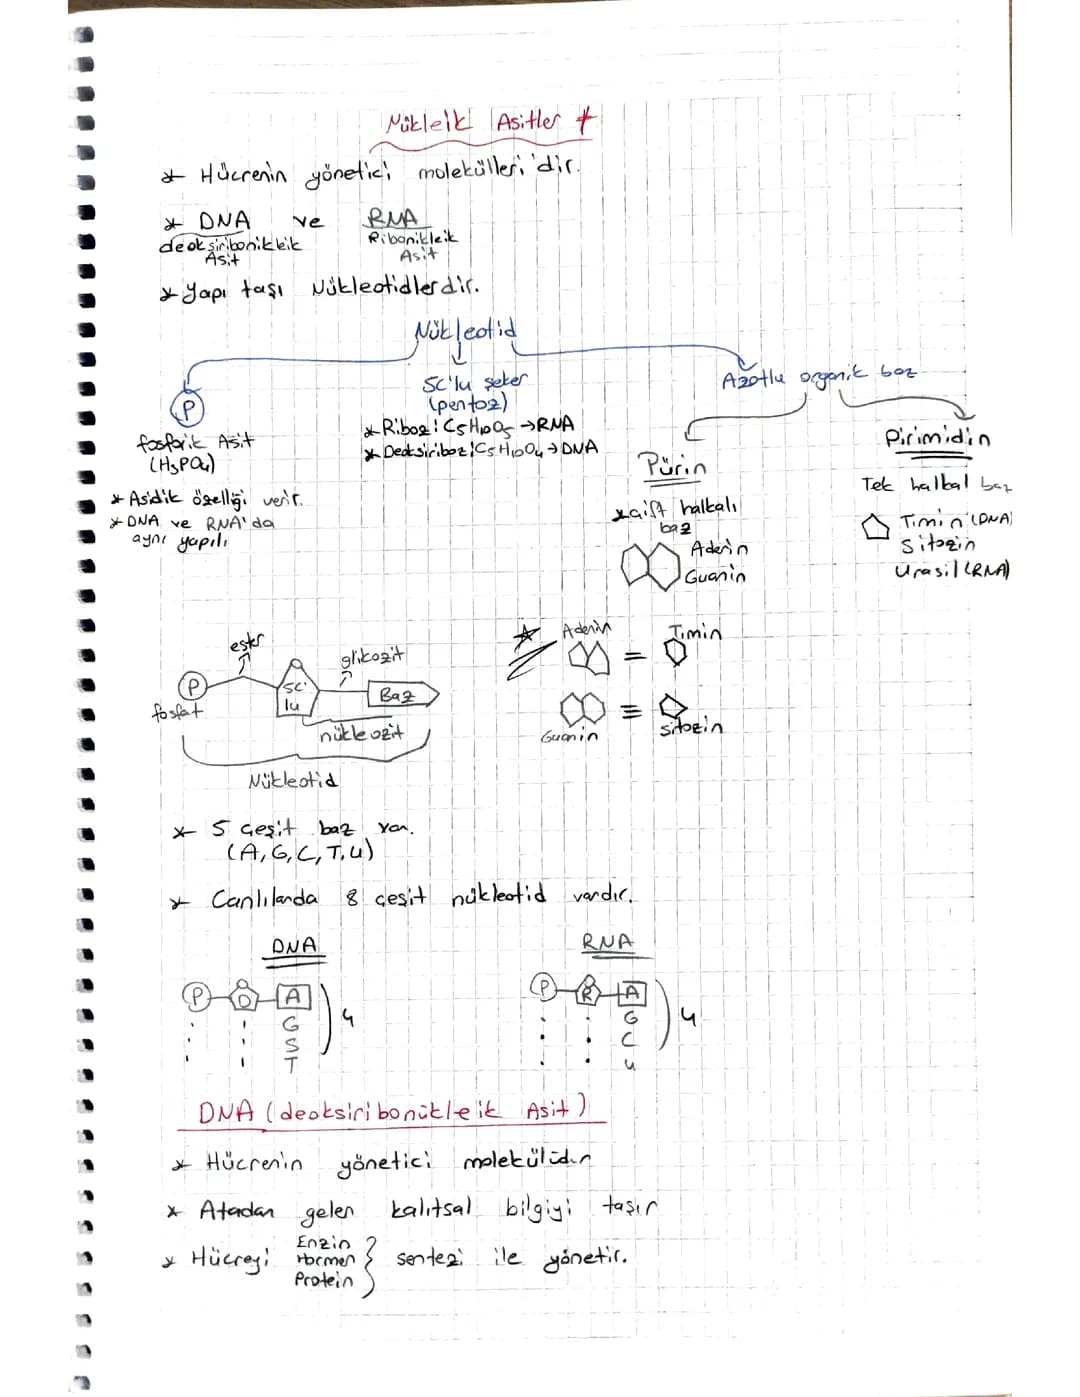 Nükleik Asitler
* Hücrenin yönetici molekülleri'dir.
* DNA ve RNA
deoksiribonükleik Asit
Ribonükleik Asit
* Yapı taşı Nükleotidlerdir.
Nükleotid
P
fosforik Asit
(H3PO4)
* Asidik özelliği verir.
* DNA ve RNA'da
aynı yapılı
5C'lu şeker
(pentoz)
* Riboz: C5H10O5 → RNA
* Deoksiriboz: C5H10O4 → DNA
Azotlu organik baz
Pürin
* çift halkalı
baz
Adenin
Guanin
Pirimidin
Tek halkal baz
Timin (DNA)
Sitozin
Urasil (RNA)
ester
glikozit
P
5C'
lu
Baz
fosfat
nükleozit
Nükleotid
Adenin = Timin
Guanin ≡ sitozin
* 5 çeşit baz var.
(A, G, C, T, U)
* Canlılarda 8 çeşit nükleotid vardır.
DNA
P D A
G
S
T
4
RNA
P R A
G
C
U
4
DNA (deoksiribonükleik Asit)
* Hücrenin yönetici molekülüdür
* Atadan gelen kalıtsal bilgiyi taşır
* Hücreyi Enzin Hormon Protein } sentezi ile yönetir.